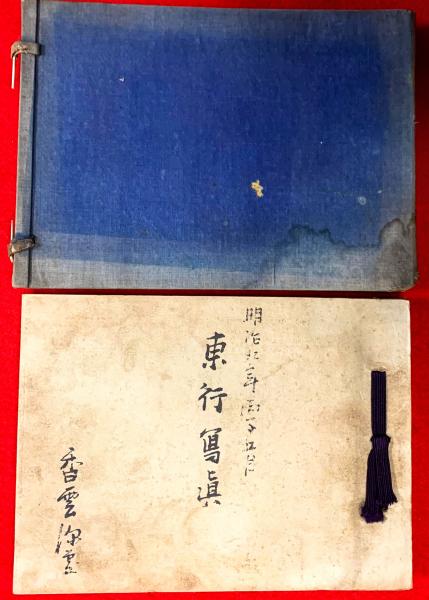 明治九年丙子五月
東行寫眞
香雲